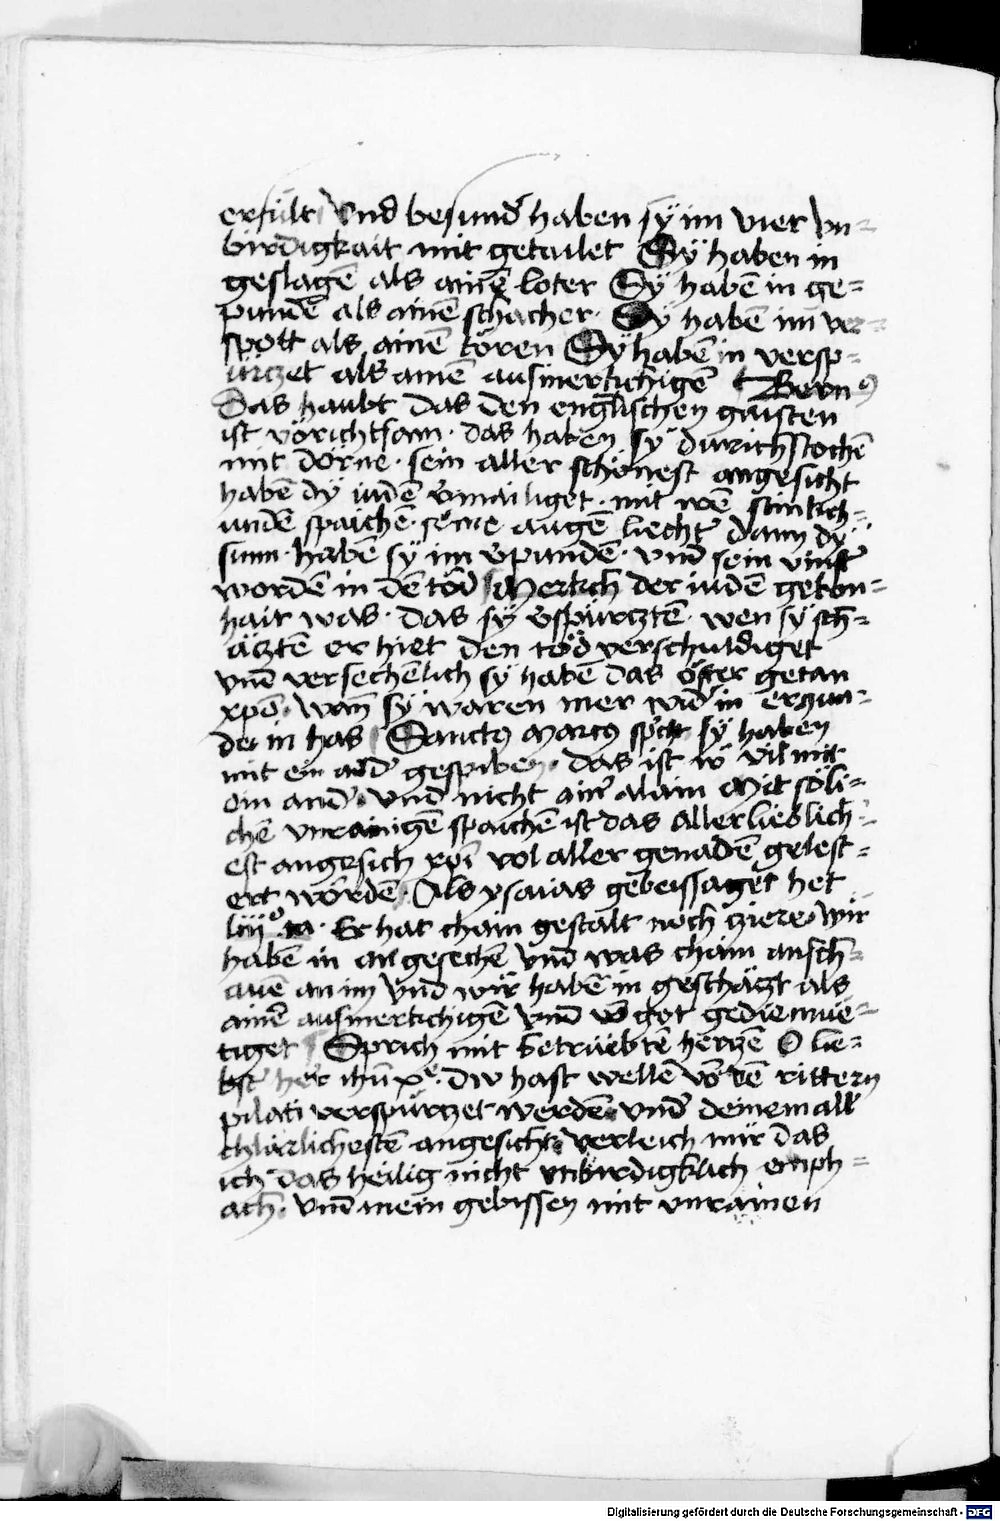 erfült Vnd besunđ haben sÿ im vier vn=
birdigkait mit getailet Sÿ haben in
geslagē als ainē loter Sÿ habē in ge=
pundē als ainē schacher · Sÿ habē im ver=
spott als ainē tören Sÿ habē in versp=
ürczet als ainē ausmerkchigē Bernꝰ
Das haubt das den englischen gaisten
ist vörichtsam · das haben sÿ durichstochē
mit dörnē · sein aller schönest angesicht
habē dÿ iudē v̄mailiget · mit irē stinkch=
undē spaichē · seine augē liechtˀ dann dÿ
sunn · habē sÿ im v̄pundē · vnd sein vinstˀ
wordē in dē tod Merkch der iudē gebon=
hait was · das sÿ v̄spürcztē · wen sÿ sch=
äcztē er hiet den töd verschuldiget
vnd versechēlich sÿ habē das öfter getan
xpō · wan̄ sÿ waren mer widˀ in erczun=
det in has Sanctꝰ Marcꝰ spcht sÿ haben
mit ein andˀ gespiben · das ist ir vil mit
ein andˀ · vnd nicht ainˀ alain Mit söli=
chē vnrainigē spaichē ist das allerlieblich=
est angesich xpī vol aller genadē gelest=
ert wordē · Als ysaias gebeissaget het
liijᵒ ca · Er hat chain gestalt noch cziere wir
habē in angesechē vnd was chain ansch=
auē an im vnd wir habē in geschäczt als
ainē ausmerkchigē vnd vō got gediemüe=
tiget Sprich mit betrüebtē herczē O lie=
bstˀ her ihū xᵉ · Dw hast wellē vō dē rittern
pilati verspürczet werdē · vnd deinem allˀ
chlärlichestē angesicht verleich mir das
ich das heilig nicht vnbirdigklich emph=
ach · vnd mein gebissen mit vnrainen
Digitalisierung gefördert durch die Deutsche Forschungsgemeinschaft - DFG